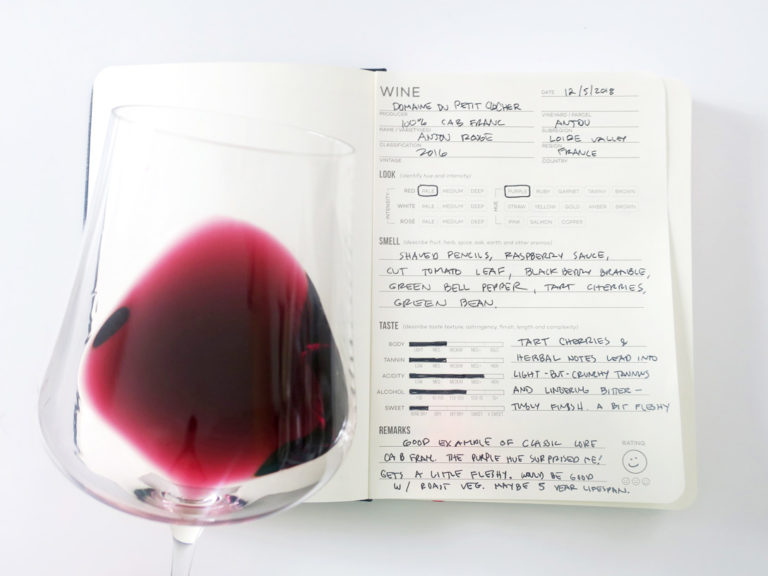 WINE
DATE 12/5/2018
DOMAINE DU PETIT CLOCHER
PRODUCER
VINEYARD / PARCEL
100% CAB FRANC
ANJOU
NAME / VARIETY(IES)
SUBREGION
ANJOU ROUGE
LOIRE VALLEY
CLASSIFICATION
REGION
2016
FRANCE
VINTAGE
COUNTRY
LOOK (identify hue and intensity)
INTENSITY
RED PALE MEDIUM DEEP
WHITE PALE MEDIUM DEEP
ROSÉ PALE MEDIUM DEEP
HUE
PURPLE RUBY GARNET TAWNY BROWN
STRAW YELLOW GOLD AMBER BROWN
PINK SALMON COPPER
SMELL (describe fruit, herb, spice, oak, earth and other aromas)
SHAVED PENCILS, RASPBERRY SAUCE,
CUT TOMATO LEAF, BLACKBERRY BRAMBLE,
GREEN BELL PEPPER, TART CHERRIES,
GREEN BEAN.
TASTE (describe taste texture, astringency, finish, length and complexity)
BODY
TANNIN
ACIDITY
ALCOHOL
SWEET
TART CHERRIES &
HERBAL NOTES LEAD INTO
LIGHT-BUT-CRUNCHY TANNINS
AND LINGERING BITTER-
TINGLY FINISH. A BIT FLESHY
REMARKS
GOOD EXAMPLE OF CLASSIC LOIRE
CAB FRANC. THE PURPLE HUE SURPRISED ME!
GETS A LITTLE FLESHY. WOULD BE GOOD
W/ ROAST VEG. MAYBE 5 YEAR LIFESPAN.
RATING